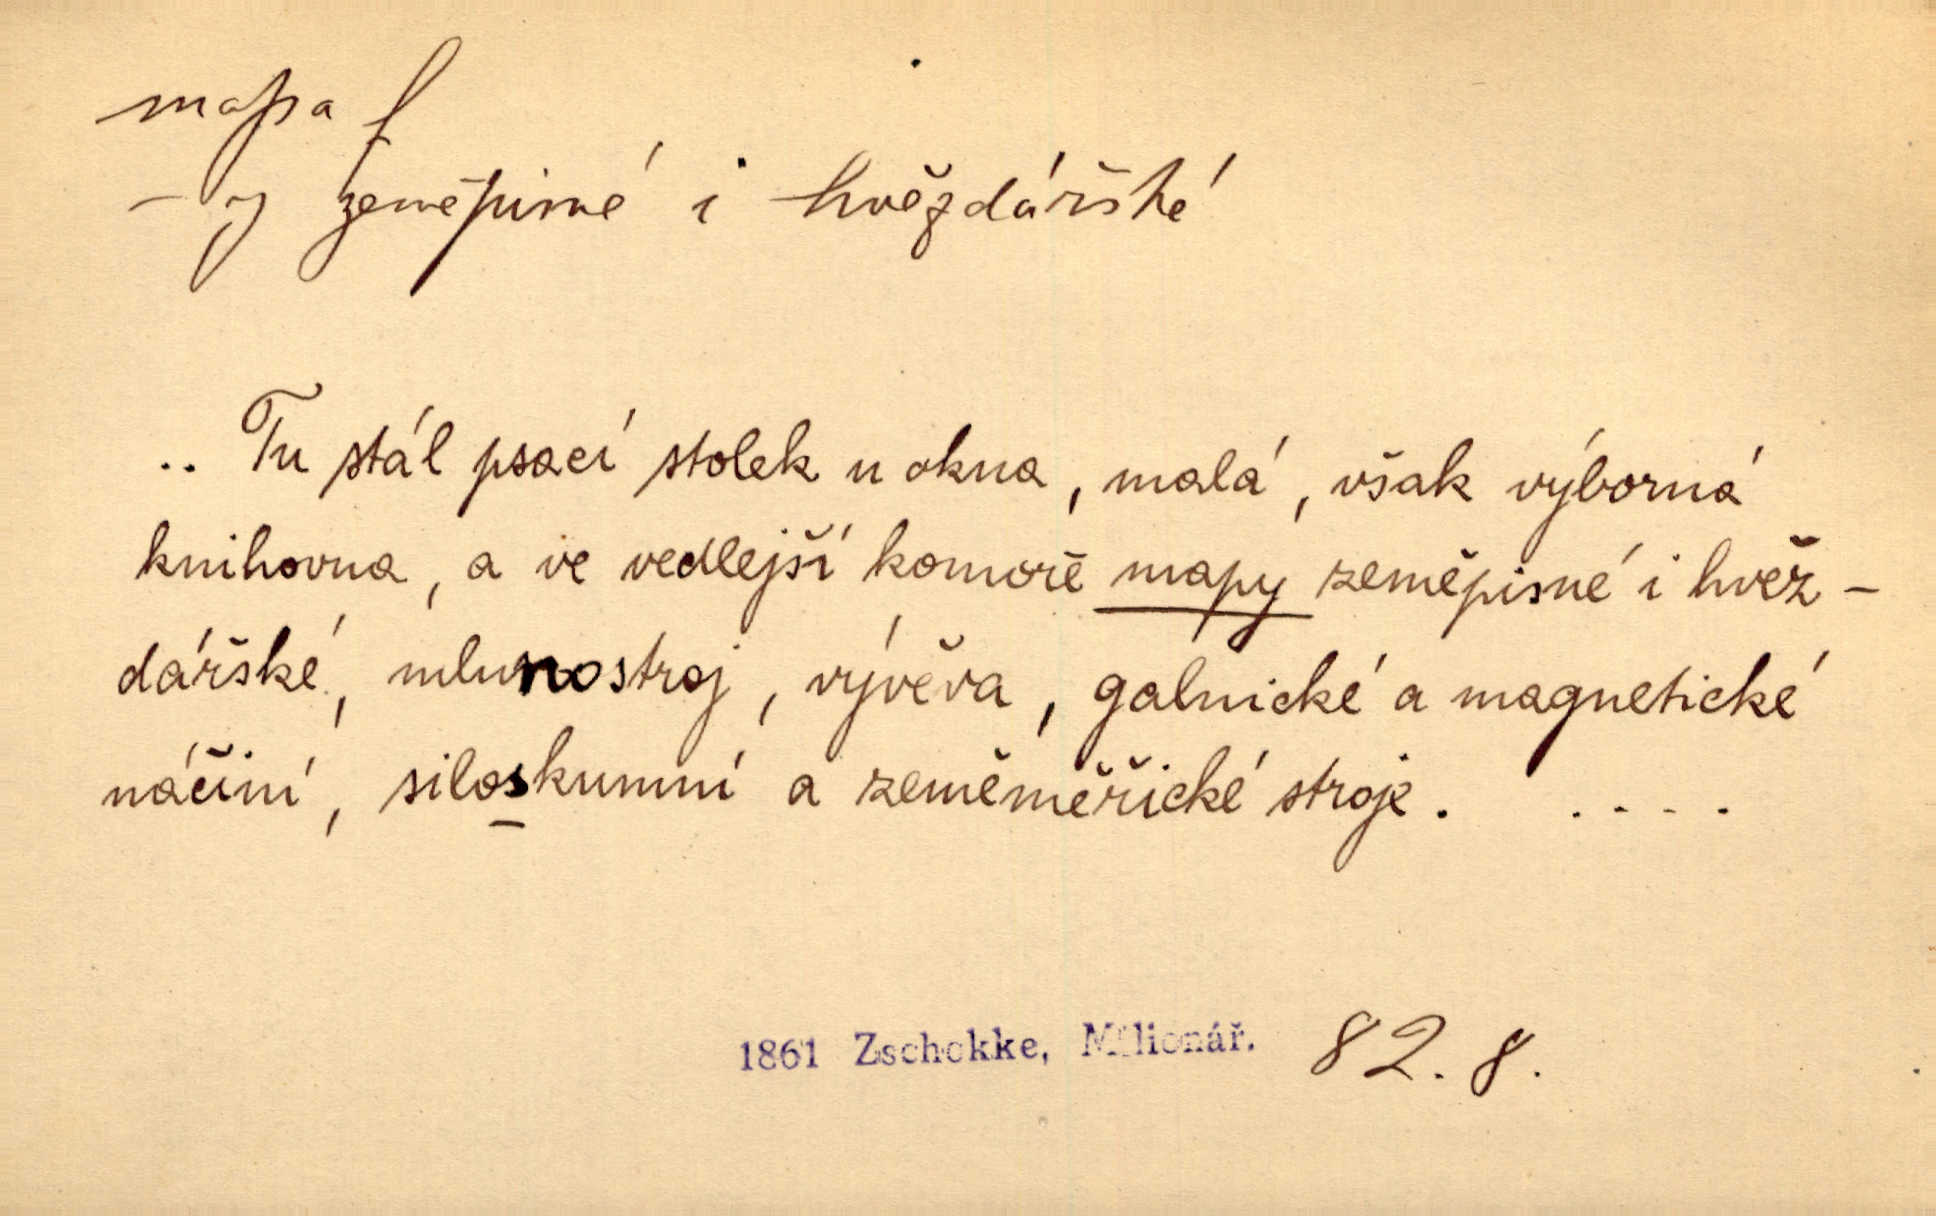 mapa f
- y zeměpisné i hvězdářské
.. Tu stál psací stolek u okna, malá, však výborná
knihovna, a ve vedlejší komoře mapy zeměpisné i hvěz-
dářské, mlunostroj, vývěva, galnické a magnetické
náčiní, siloskumní a zeměměřické stroje. ....
1861 Zschokke, Milionář. 82. 8.